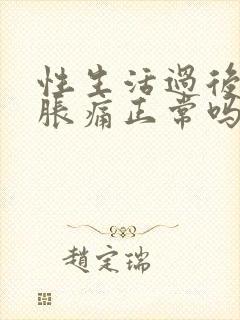 性生活過後
脹痛正常吗
趙定瑞